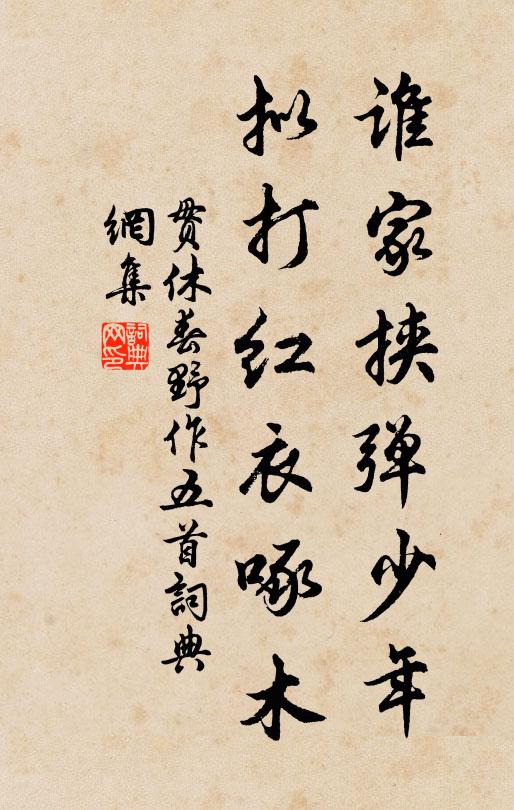 谁家挟弹少年
拟打红衣啄木
贯休春野作五首词典
網集
詞典
网印